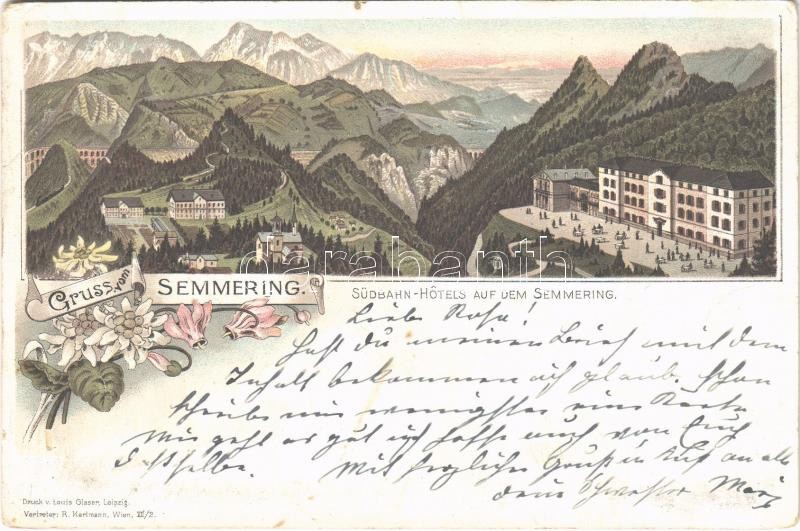 Gruss vom SEMMERING.
SÜDBAHN-HÔTELS AUF DEM SEMMERING.
darabanth
Liebe Rosa!
Hast du meinen Brief mit dem
Inhalt bekommen ich glaub. schon
schreibe mir wenigstens eine Karte
Mir geht es gut ich hoffe auch von Euch
dasselbe. Mit herzlichen Gruß u. Kuß an alle
dein Schwester
Druck v. Louis Glaser, Leipzig.
Vertreter: R. Kerlmann, Wien, VI/2.